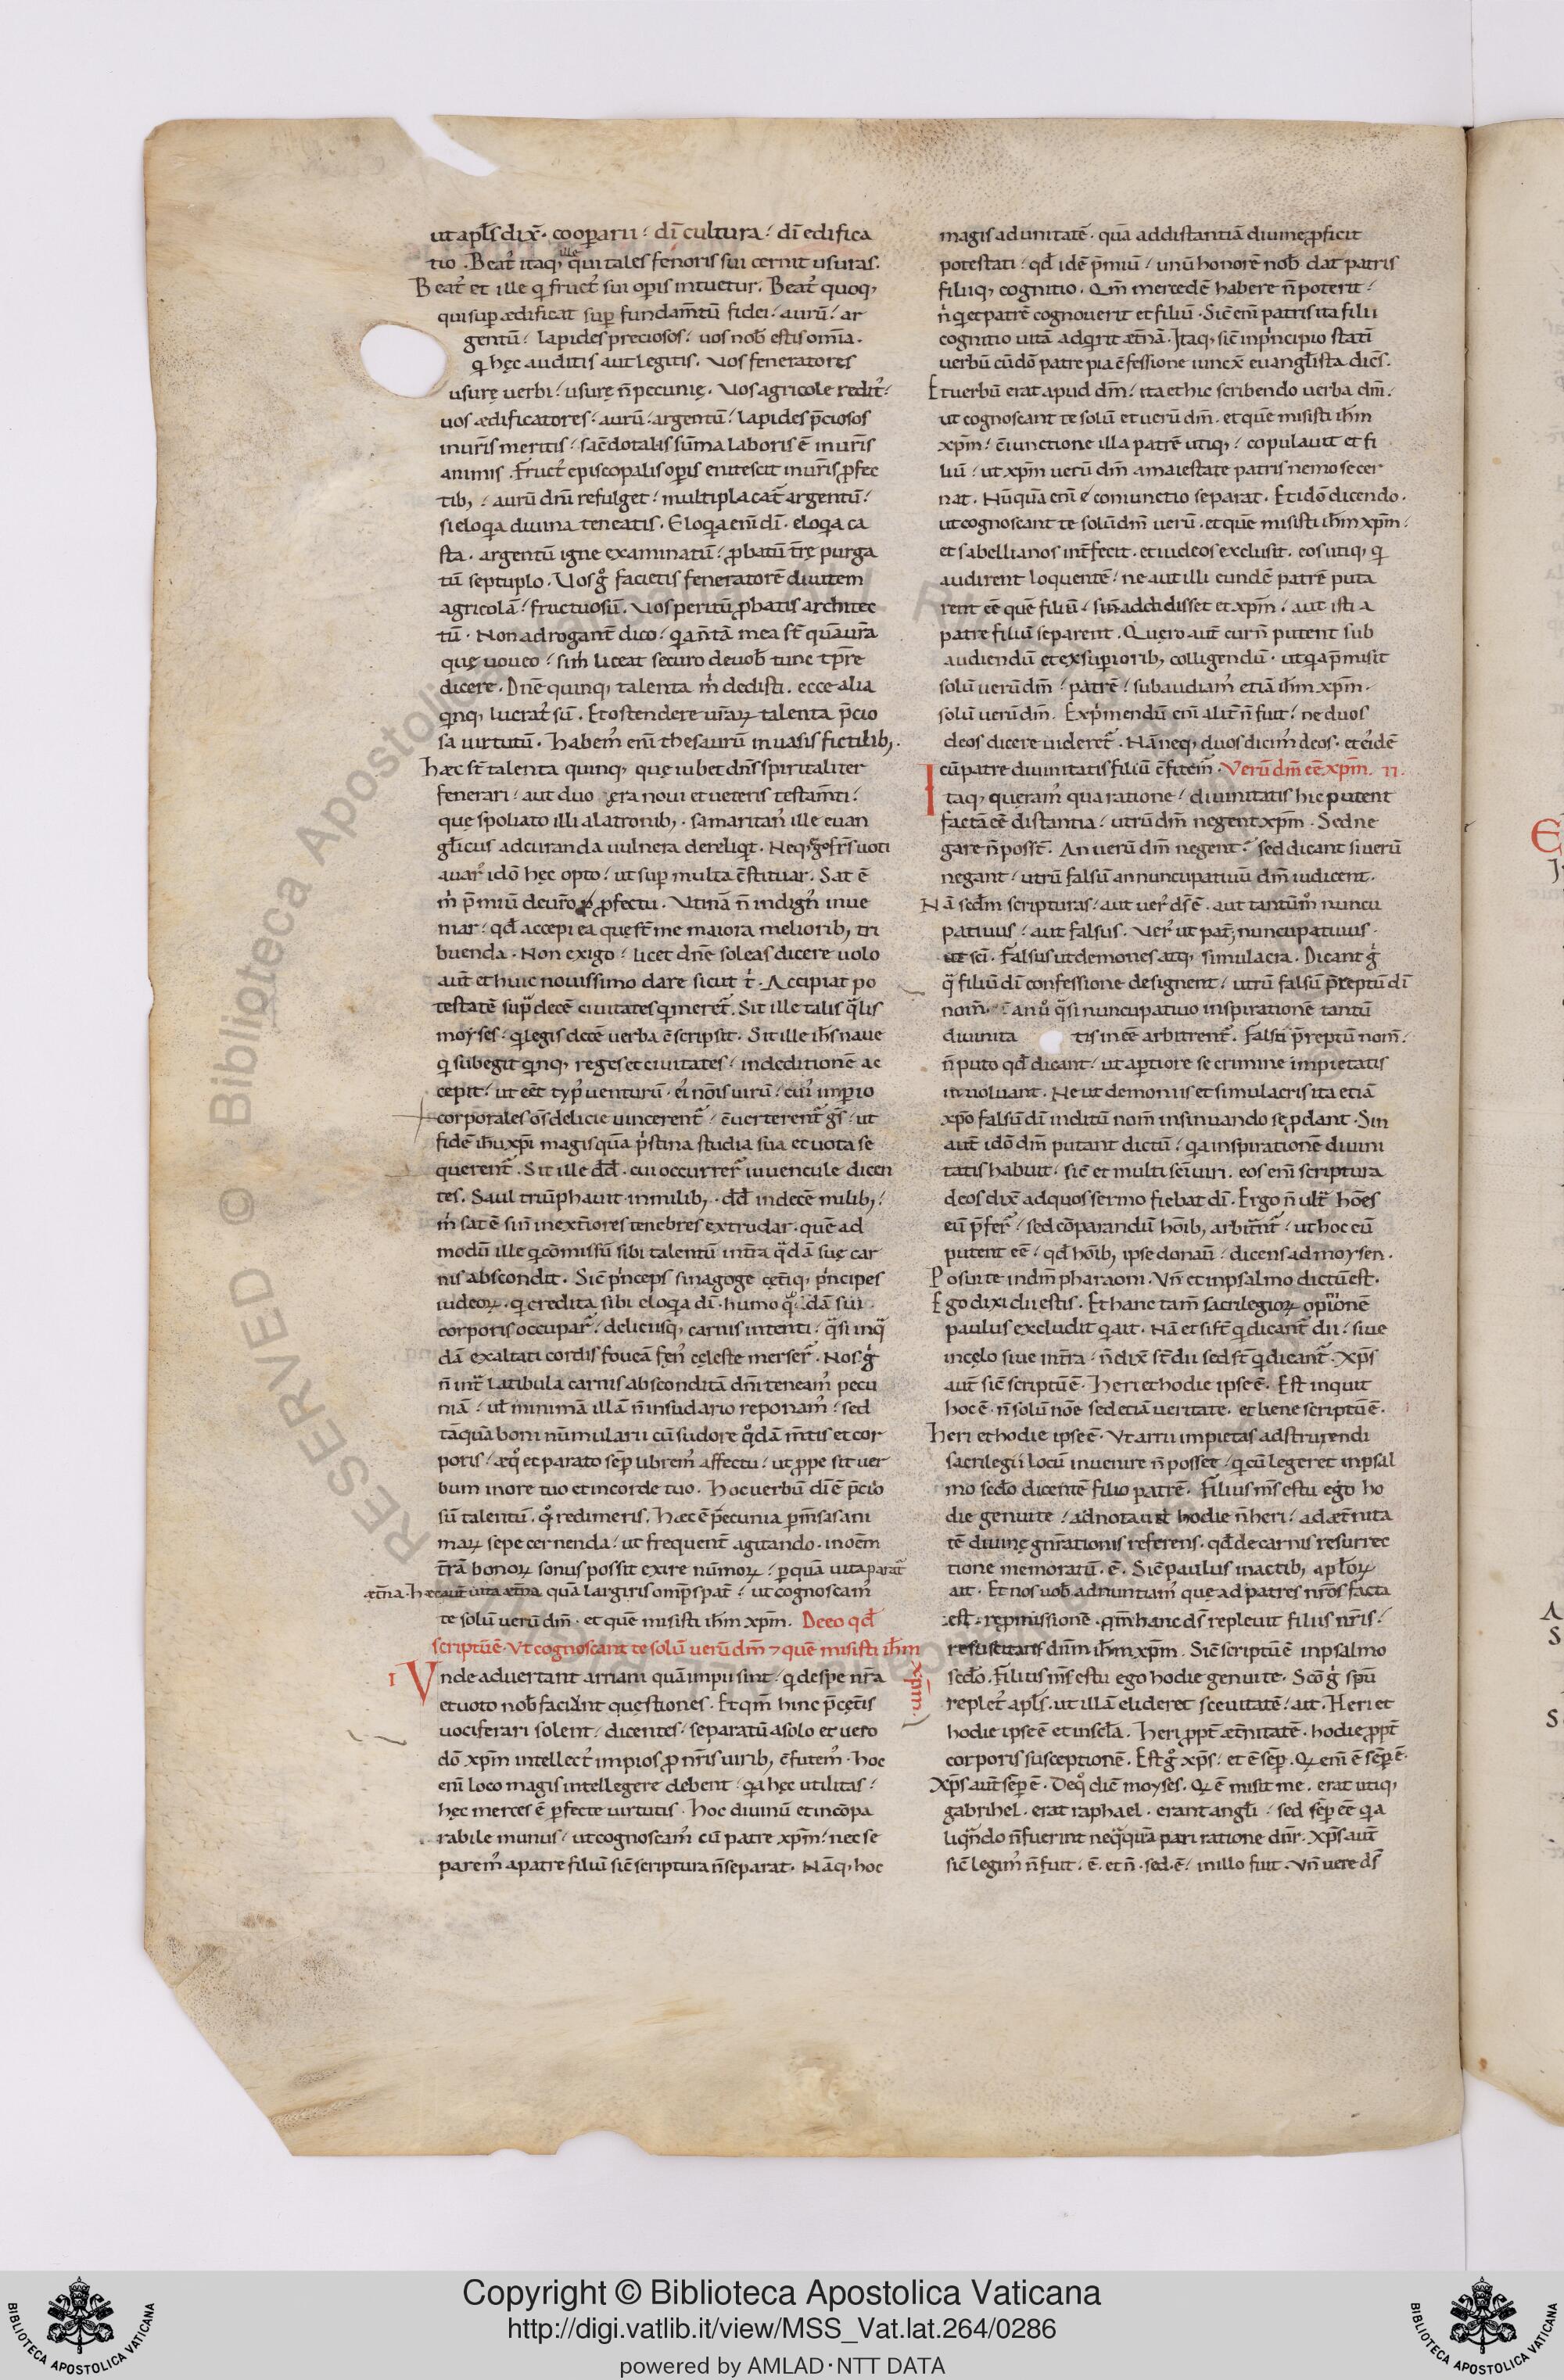 ut apl̄s dix̄. coop̄arii ؛ dī cultura ؛ dī edifica
tio . Beatꝰ itaq, ille q̄ui tales fenoris sui cernit usuras.
Beatꝰ et ille q fructꝰ sui op̄is intuetur. Beatꝰ quoq,
qui sup̄ ædificat sup̄ fundam̄tū fidei ؛ aurū ؛ ar
gentū ؛ lapides preciosos ؛ uos nob̄ estis om̄ia.
q hęc auditis aut legitis. Vos feneratores
usurę uerbi ؛ usurę n̄ pecunię. Vos agricole redit᷒ ؛
uos ædificatores ؛ aurū ؛ argentū ؛ lapides p̄ciosos
in ur̄is meritis ؛ sac̄dotalis sūma laboris ē in ur̄is
animis . Fructꝰ episcopalis op̄is enitescit in ur̄is ꝓfec
tib, ؛ aurū dn̄i refulget ؛ multiplacat᷒ argentū ؛
si eloqa diuina teneatis. Eloqa eni᷒ dī . eloqa ca
sta . argentū igne examinatū ؛ ꝓbatū t̄rę purga
tū septuplo . Vos gͦ facietis feneratorē diuitem
agricolā ؛ fructuosū. Vos peritū ꝓbatis architec
tū . Non adrogant᷒ dico ؛ qa n̄ tā mea st̄ quā ur̄a
quę uoueo ؛ sim̄ liceat securo de uob̄ tunc t̄pr̄e
dicere . Dn̄e quinq, talenta m̍ dedisti . ecce alia
qnq, lucratꝰ sū . Et ostendere ur̄aꝝ talenta p̄cio
sa uirtutū . Habemꝰ eni᷒ thesaurū in uasis fictilib,.
Hæc st̄ talenta quinq, quę iubet dn̄s spiritaliter
fenerari ؛ aut duo ęra noui et ueteris testam̄ti ؛
quę spoliato illi a latronib, . samaritanꝰ ille euan
gl̄icus ad curanda uulnera dereliqt. Neq, gͦ fr̄s uoti
auarꝰ idō hęc opto ؛ ut sup̄ multa c̄stituar. Sat ē
m̍ p̄miū de ur̄o ꝓfectu . Vtinā n̄ indignꝰ inue
niar ؛ qd̄ accepi ea que st̄ me maiora meliorib, tri
buenda . Non exigo ؛ licet dn̄e soleas dicere uolo
aut̄ et huic nouissimo dare sicut t̍ . Accipiat po
testatē supͣ decē ciuitates q meret᷒. Sit ille talis qͣlis
moyses . q legis decē uerba c̄scripsit. Sit ille ih̄s naue
q subegit qnq, reges et ciuitates ؛ in deditionē ac
cepit ؛ ut eēt typꝰ uenturū . ei̍ nōis uirū ؛ cui̍ imp̄io
corporales os̄ delicie uincerent᷒ ؛ c̄uerterent᷒ gs̄ ؛ ut
fidē ih̄u xp̄i magis quā p̍stina studia sua et uota se
querent᷒ . Sit ille dd̄ . cui occurrer᷒ iuuencule dicen
tes . Saul triūphauit in milib, . dd̄ in decē milib, ؛
m̍ sat ē si n̄ in ext̄iores tenebres extrudar . quē ad
modū ille q cōmissū sibi talentū int̄ra qͣdā suę car
nis abscondit . Sic̄ p̍nceps sinagoge cęt̄iq, p̍ncipes
iudeoꝝ . q credita sibi eloqa dī . humo qͣdā sui
corporis occupar᷒ ؛ deliciisq, carnis intenti ؛ qͣsi inqͣ
dā exaltati cordis foueā fenꝰ celeste merser᷒ . Nos g̍
n̄ intͣ latibula carnis absconditā dn̄i teneamꝰ pecu
niā ؛ ul̄ minimā illā n̄ in sudario reponamꝰ ؛ sed
tāquā boni nūmularii cū sudore qͦdā m̄tis et cor
poris ؛ æqͦ et parato sēp̄ libremꝰ affectu ؛ ut ꝓpe sit uer
bum in ore tuo et in corde tuo . Hoc uerbū dī ē p̄cio
sū talentū . qͦ redimeris . Hæc ē pecunia p̄ m̄sas ani
maꝝ sepe cernenda ؛ ut frequent᷒ agitando . in oēm
t̄rā bonoꝝ sonus possit exire nūmoꝝ ؛ p̄ quā uita parat᷒
æt̄na . Hæc aut̄ uita æt̄na quā largiris omp̄s pat᷒ ؛ ut cognoscamꝰ
te solū uerū dm̄ . et quē misisti ih̄m xp̄m . De eo qd̄
scriptū ē . Vt cognoscant te solū uerū dm̄ ⁊ quē misisti ih̄m
xpm.
I Vnde aduertant arriani quā impii sint ؛ q de spe nr̄a
et uoto nob̄ faciant questiones . Et qm̄ hinc p̄ cęt̄is
uociferari solent ؛ dicentes ؛ separatū a solo et uero
dō xp̄m intellectꝰ impios ꝓ nr̄is uirib, c̄futemꝰ . Hoc
eni᷒ loco magis intellegere debent ؛ qa hęc utilitas ؛
hęc merces ē p̄fecte uirtutis . Hoc diuinū et incōpa
rabile munus ؛ ut cognoscamꝰ cū patre xp̄m ؛ nec se
paremꝰ a patre filiū sic̄ scriptura n̄ separat . Nāq, hoc
magis ad unitatē . quā ad distantiā diuine ꝓficit
potestati ؛ qd̄ idē p̄miū ؛ unū honorē nob̄ dat patris
filiiq, cognitio . Qm̄ mercedē habere n̄ poterit ؛
n̍ q et patrē cognouerit et filiū . Sic̄ eni᷒ patris ita filii
cognitio uitā adqrit æt̄nā . Itaq, sic̄ in p̍ncipio stati᷒
uerbū cū dō patre pia c̄fessione iuncx̄ euangl̄ista dices̄ .
Et uerbū erat apud dm̄ ؛ ita et hic scribendo uerba dn̄i .
ut cognoscant te solū et uerū dm̄ . et quē misisti ih̄m
xp̄m ؛ c̄iunctione illa patrē utiq, ؛ copulauit et fi
liū ؛ ut xp̄m uerū dm̄ a maiestate patris nemo secer
nat . Nūquā eni᷒ coniunctio separat . Et idō dicendo .
ut cognoscant te solū dm̄ uerū . et quē misisti ih̄m xp̄m ؛
et sabellianos int̄fecit . et iudeos exclusit . eos utiq, q
audirent loquentē ؛ ne aut illi eundē patrē puta
rent eē quē filiū ؛ si n̄ addidisset et xp̄m ؛ aut isti a
patre filiū separent . Quęro aut̄ cur n̄ putent sub
audiendū et ex superiorib, colligendū . ut qa p̄misit
solū uerū dm̄ ؛ patrē ؛ subaudiamꝰ etiā ih̄m xp̄m .
solū uerū dm̄ . Exp̍mendū eni᷒ alit᷒ n̄ fuit ؛ ne duos
deos dicere uideret᷒ . Nā neq, duos dicimꝰ deos . et ei̍dē
cū patre diuinitatis filiū c̄fitem᷒ . Verū dm̄ eē xp̄m . II.
Itaq, quęramꝰ qua ratione ؛ diuinitatis hic putent
factā eē distantia ؛ utrū dm̄ negent xp̄m . Sed ne
gare n̄ posst̄ . An uerū dm̄ negent ؛ sed dicant si uerū
negant ؛ utrū falsū an nuncupatiuū dm̄ iudicent .
Nā sedm̄ scripturas ؛ aut uerꝰ ds̄ ē . aut tantūmͦ nuncu
patiuus ؛ aut falsus . Verꝰ ut pat᷒; nuncupatiuus .
ut sci᷒ . Falsus ut demones atq, simulacra . Dicant g̍
qͣ filiū dī confessione designent ؛ utrū falsū p̄reptū dī
nom̄ . an uͦ qͣsi nuncupatiuo inspirationē tantū
diuinita tis in eē arbitrent᷒ . Falsi p̄reptū nom̄ .
n̄ puto qd̄ dicant ؛ ut ap̄tiore se crimine impietatis
inuoluant . Ne ut demoniis et simulacris ita etiā
xp̄o falsū dī inditū nom̄ insinuando se pdant . Sin
aut̄ idō dm̄ putant dictū ؛ qa inspirationē diuini
tatis habuit ؛ sic̄ et multi sci᷒ uiri . eos eni᷒ scriptura
deos dix̄ ad quos sermo fiebat dī . Ergo n̄ ultͣ hoēs
eū p̄fer᷒ ؛ sed cōparandū hoīb, arbit̄nt᷒ ؛ ut hoc eū
putent eē ؛ qd̄ hoīb, ipse donau᷒ ؛ dicens ad moysen .
Posui te in dm̄ pharaoni . Vn̄ et in psalmo dictū est .
Ego dixi dii estis . Et hanc tam̄ sacrilegioꝝ opinionē
paulus excludit q ait . Nā et si st̄ q dicant᷒ dii ؛ siue
in celo siue in t̄ra ؛ n̄ dix̄ st̄ dii sed st̄ q dicant᷒ . Xp̄s
aut̄ sic̄ scriptū ē . Heri et hodie ipse ē . Est inquit
hoc ē . n̄ solū nōe sed etiā ueritate . et bene scriptū ē .
Heri et hodie ipse ē . Vt arrii impietas adstruendi
sacrilegii locū inuenire n̄ posset ؛ q cū legeret in psal
mo secdō dicentē filio patrē . Filius m̄s es tu ego ho
die genui te ؛ adnotauit hodie n̄ heri ؛ ad æt̄nita
tē diuinę gn̄rationis referens . qd̄ de carnis resurrec
tione memoratū . ē . Sic̄ paulus in actib, apl̄oꝝ
ait . Et nos uob̄ adnuntiamꝰ quę ad patres nr̄os facta
est . repmissionē . qm̄ hanc ds̄ repleuit filiis nr̄is ؛
resuscitans dnm̄ ih̄m xp̄m . Sic̄ scriptū ē in psalmo
secdō . Filius m̄s es tu ego hodie genui te . Scō g̍ spū
repletꝰ apl̄s . ut illā elideret sceuitatē ؛ ait . Heri et
hodie ipse ē et in sc̄la . Heri ꝓpt̄ æt̄nitatē . hodie ꝓpt̄
corporis susceptionē . Est gͦ xp̄s ؛ et ē sēp̄ . Q eni᷒ ē sēp̄ ē .
Xp̄s aut̄ sēp̄ ē . De qͦ dic̄ moyses . Q ē misit me . erat utiq,
gabrihel . erat raphael . erant angl̄i ؛ sed sēp̄ eē q a
liqͣndo n̄ fuerint neqͣquā pari ratione dn̄r . Xp̄s aut̄
sic̄ legimꝰ n̄ fuit ؛ ē . et n̄ . sed . ē ؛ in illo fuit . Vn̄ uere ds̄
Copyright © Biblioteca Apostolica Vaticana
http://digi.vatlib.it/view/MSS_Vat.lat.264/0286
powered by AMLAD·NTT DATA